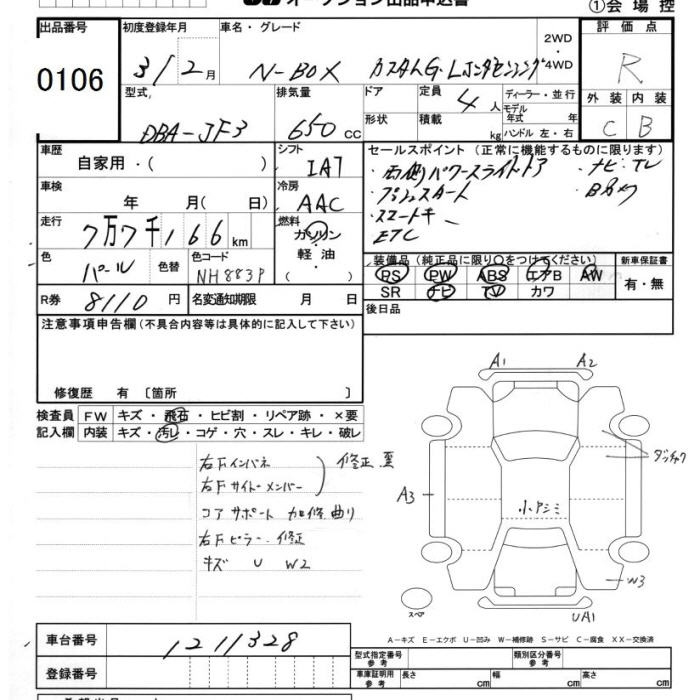 ①会 場 控
オークション出品申込書
出品番号 初度登録年月 車名・グレード 2WD・4WD 評 価 点
0106 3/2月 N-BOX カスタムG・Lホンダセンシング R
型式 排気量 ドア 定員 4人 ディーラー・並行 外 装 内 装
DBA-JF3 650cc 形状 積載 kg モデル年式 年 ハンドル 左・右 C B
車歴 シフト セールスポイント (正常に機能するものに限ります)
自家用・( ) IAT ・両側パワースライドドア ・ナビ・TV
車検 冷房 ・プッシュスタート ・Bカメ
年 月( 日) AAC ・スマートキー
走行 燃料 ETC
7万7千166km ガソリン・軽油・( )
色 色替 色コード 装備品 (純正品に限り○をつけてください) 新車保証書
パール NH883P PS PW ABS エアB AW 有・無
R券 8110円 名変通知期限 月 日 SR ナビ TV カワ
注意事項申告欄 (不具合内容等は具体的に記入して下さい) 後日品
修復歴 有 〔箇所 〕
検査員 FW キズ・飛石・ヒビ割・リペア跡・×要
記入欄 内装 キズ・汚レ・コゲ・穴・スレ・キレ・破レ
A1 A2
右Fインパネ 修正 悪
右Fサイドメンバー
コアサポート 加修 曲り
右Fピラー 修正
キズ U W2
A3
小キズシミ
W3
スペア
UA1
A－キズ E－エクボ U－凹み W－補修跡 S－サビ C－腐食 XX－交換済
車台番号 1211328
登録番号
型式指定番号 参考 類別区分番号 参考
車庫証明用 参考 長さ cm 幅 cm 高さ cm